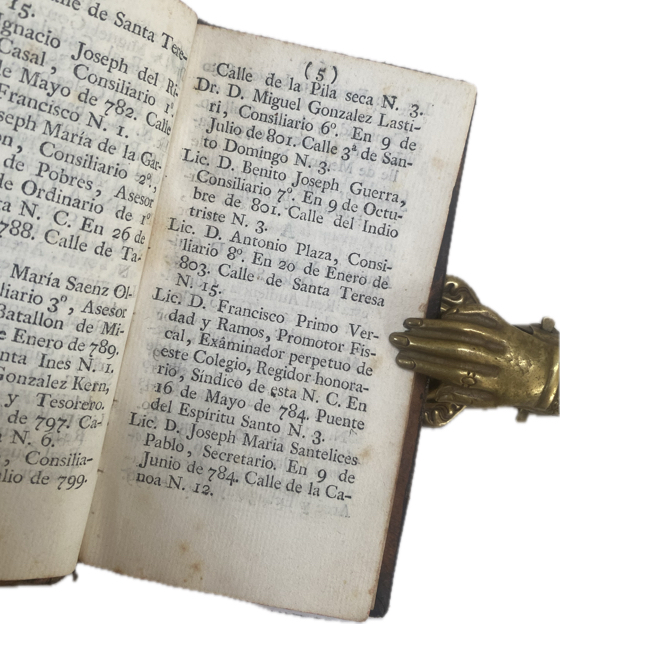 15.
lle de Santa Tere-
Ignacio Joseph del Ri-
Casal, Consiliario 1º.
de Mayo de 782. Calle
Francisco N. 1.
Joseph María de la Gar-
Consiliario 2º,
de Pobres, Asesor
de Ordinario de 1º
N. C. En 26 de
788. Calle de Ta-
María Saenz Ol-
liario 3º, Asesor
Batallon de Mi-
Enero de 789.
nta Ines N. 1.
Gonzalez Kern,
y Tesorero.
de 797. Ca-
N. 6.
, Consilia-
lio de 799.
(5)
Calle de la Pila seca N. 3.
Dr. D. Miguel Gonzalez Lasti-
ri, Consiliario 6º. En 9 de
Julio de 801. Calle 3ª de San-
to Domingo N. 3.
Lic. D. Benito Joseph Guerra,
Consiliario 7º. En 9 de Octu-
bre de 801. Calle del Indio
triste N. 3.
Lic. D. Antonio Plaza, Consi-
liario 8º. En 20 de Enero de
803. Calle de Santa Teresa
N. 15.
Lic. D. Francisco Primo Ver-
dad y Ramos, Promotor Fis-
cal, Exâminador perpetuo de
este Colegio, Regidor honora-
rio, Síndico de esta N. C. En
16 de Mayo de 784. Puente
del Espíritu Santo N. 3.
Lic. D. Joseph María Santelices
Pablo, Secretario. En 9 de
Junio de 784. Calle de la Ca-
noa N. 12.